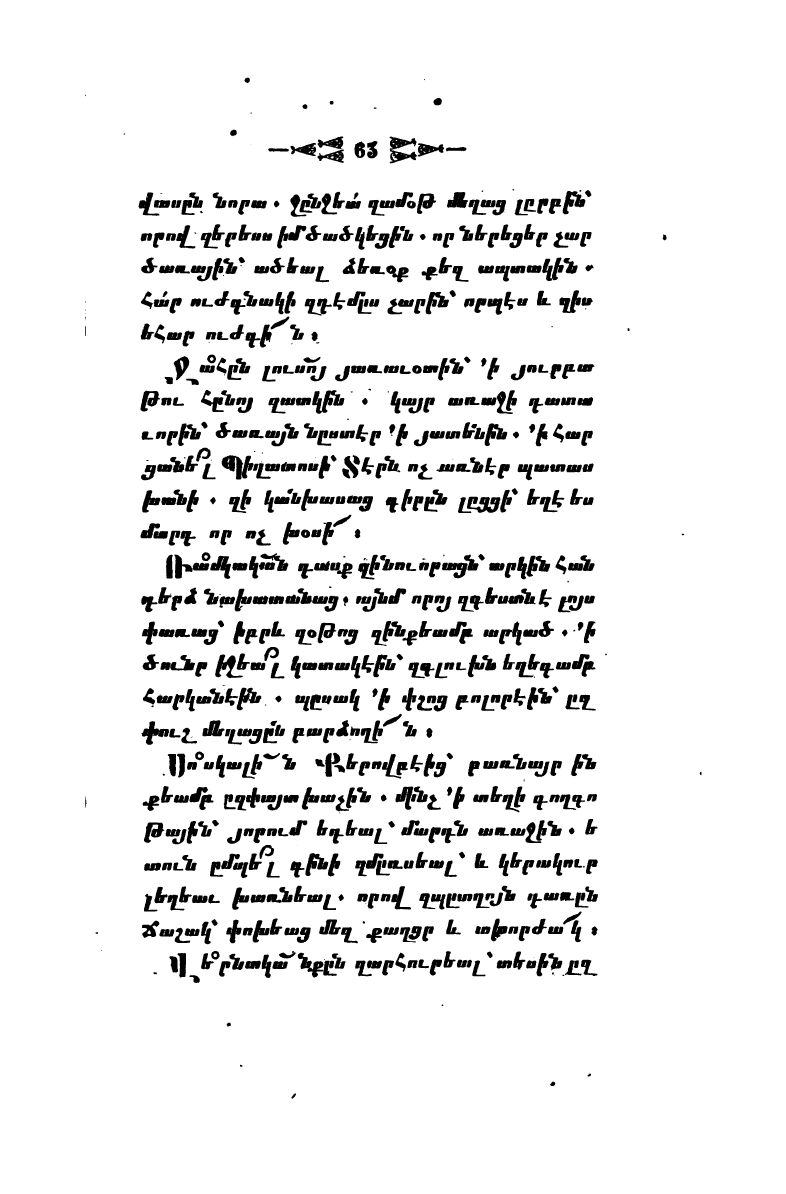 63
վասըն նորա . ջընջեա՛ զամօթ մեղաց լըրբին՝
որով զերեսս իմ ծածկեցին . որ ներեցեր չար
ծառային՝ ածեալ ձեռօք քեզ ապտակին .
Հա՛ր ուժգնակի զդէմըս չարին՝ որպէս և զիս
եՀար ուժգի՜ն ։
ՊաՀըն լուսոյ յառաւօտին՝ ՚ի յուրբա
թու Հընոյ զատկին . կայր առաջի դատա
ւորին՝ ծառայն նըստէր ՚ի յատենին . ՚ի Հար
ցանել Պիղատոսի՝ Տէրն ոչ առնէր պատաս
խանի . զի կանխասաց գիրըն լըցցի՝ եղէ ես
մարդ որ ոչ խօսի՜ ։
Ռամկական դասք զինուորացն՝ արկին Հան
դերձ նախատանաց . այնմ որոյ զգեստն է լոյս
փառաց՝ իբրև զօթոց զինքեամբ արկած . ՚ի
ծունր իջեալ կատակէին՝ զգլուխն եղեգամբ
Հարկանէին . պըսակ ՚ի փշոց բոլորէին՝ ըզ
փուշ մեղացըն բարձողի՜ն ։
Ոսկալի՜ն Քերովբէից՝ բառնայր ին
քեամբ ըզփայտ խաչին . մինչ ՚ի տեղի գողգո
թային՝ յորում եդեալ՝ մարդն առաջին . ե
տուն ըմպել գինի զմըռսեալ՝ և կերակուր
լեղեաւ խառնեալ . որով զպըտղոյն դառըն
ճաշակ՝ փոխեաց մեզ քաղցր և տխորժա՜կ ։
զարՀուրեալ՝ տեսին ըզ